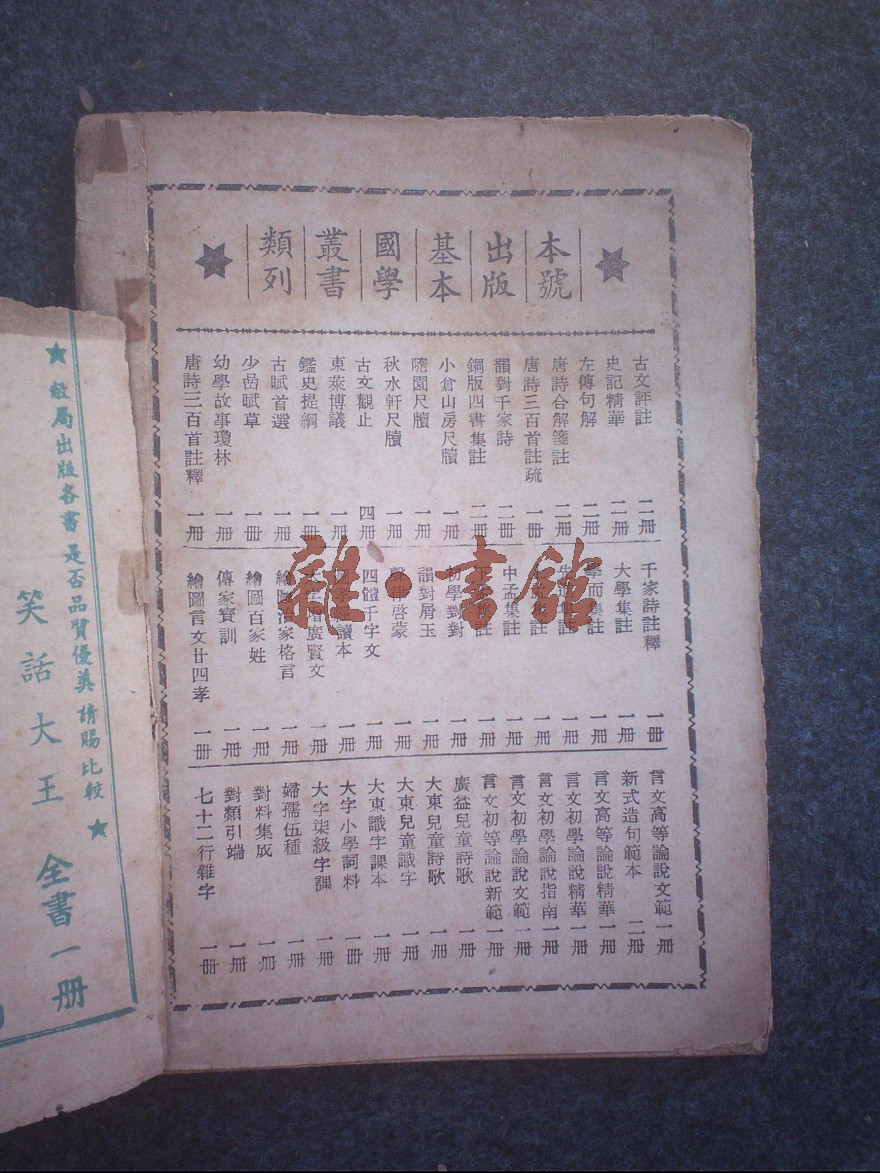 本號出版基本國學叢書類列
古文評註 二册
史記精華 二册
左傳句解 二册
唐詩合解箋註 二册
唐詩三百首註疏 一册
韻對千家詩 二册
銅版四書集註 二册
小倉山房尺牘 一册
隨園尺牘 一册
秋水軒尺牘 一册
古文觀止 四册
東萊博議 一册
鑑史提綱 一册
古賦首選 一册
少嵒賦草 一册
幼學故事瓊林 一册
唐詩三百首註釋 一册
千家詩註釋 一册
大學集註 一册
學而集註 一册
集註 一册
集註 一册
中孟集註 一册
下孟集註 一册
初學對對 一册
韻對屑玉 一册
聲律啓蒙 一册
四體千字文 一册
讀本 一册
增廣賢文 一册
繪圖治家格言 一册
繪圖百家姓 一册
傳家寶訓 一册
繪圖言文廿四孝 一册
言文高等論說文範 一册
新式造句範本 二册
言文高等論說精華 一册
言文初學論說精華 一册
言文初學論說指南 一册
言文初學論說文範 一册
言文初等論說新範 一册
廣益兒童詩歌 一册
大東兒童詩歌 一册
大東兒童識字 一册
大東識字課本 一册
大字小學詞料 一册
大字柒級字課 一册
婦孺伍種 一册
對料集成 一册
對類引端 一册
七十二行雜字 一册
★敝局出版各書 是否品質優美 請賜比較★
笑話大王 全書一册
雜·書館